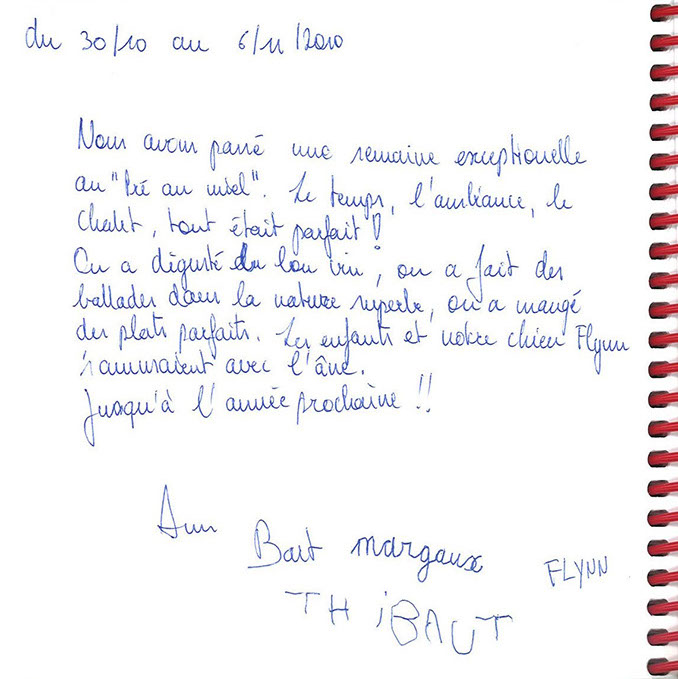 du 30/10 au 6/11/2010
Nous avons passé une semaine exceptionelle
au "Pré au miel". Le temps, l'ambiance, le
chalet, tout était parfait !
On a dégusté du bon vin, on a fait des
ballades dans la nature superbe, on a mangé
des plats parfaits. Les enfants et notre chien Flynn
s'amusaient avec l'âne.
Jusqu'à l'année prochaine !!
Ann
Bart margaux
FLYNN
THiBAUT